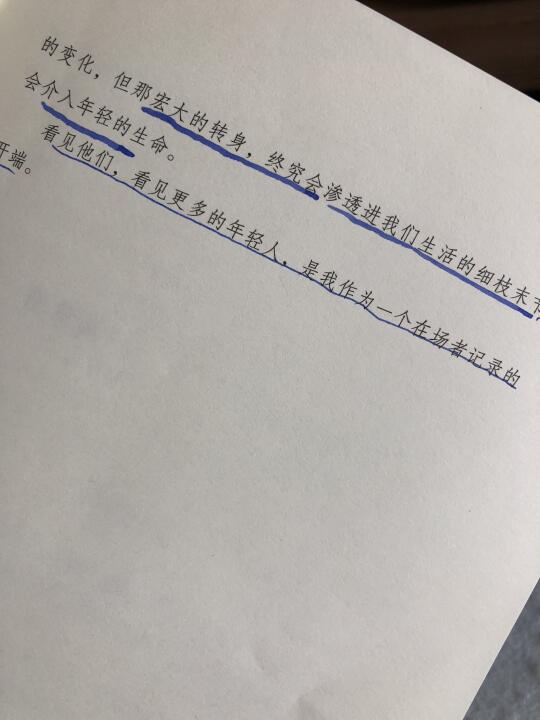 的变化，但那宏大的转身，终究会渗透进我们生活的细枝末节
会介入年轻的生命。
看见他们，看见更多的年轻人，是我作为一个在场者记录的
开端。